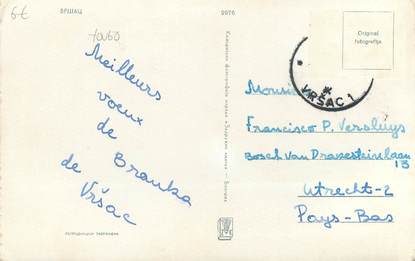 6€
ВРШАЦ
2076
70/60
Original
fotografija
VRŠAC 1
Meilleurs
voeux
de
Branka
de
Vršac
Monsi
Francisco P. Versluys
Bosch van Drakesteinlaan
13
Utrecht-2
Pays-Bas